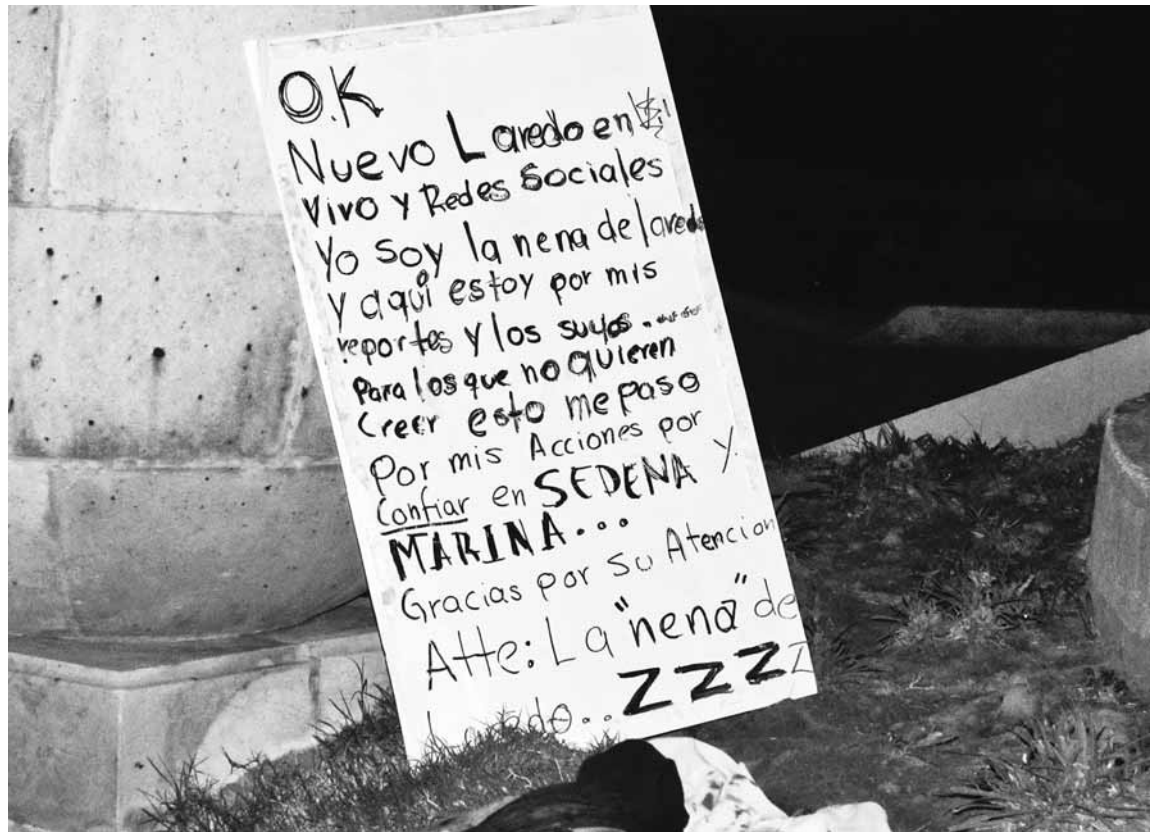 O.K
Nuevo Laredo en
Vivo y Redes Sociales
Yo Soy la nena de laredo
y aqui estoy por mis
reportes y los suyos......
Para los que no quieren
Creer esto me paso
Por mis Acciones por
Confiar en SEDENA y
MARINA...
Gracias por Su Atencion
Atte: La "nena" de
Laredo..ZZZZ